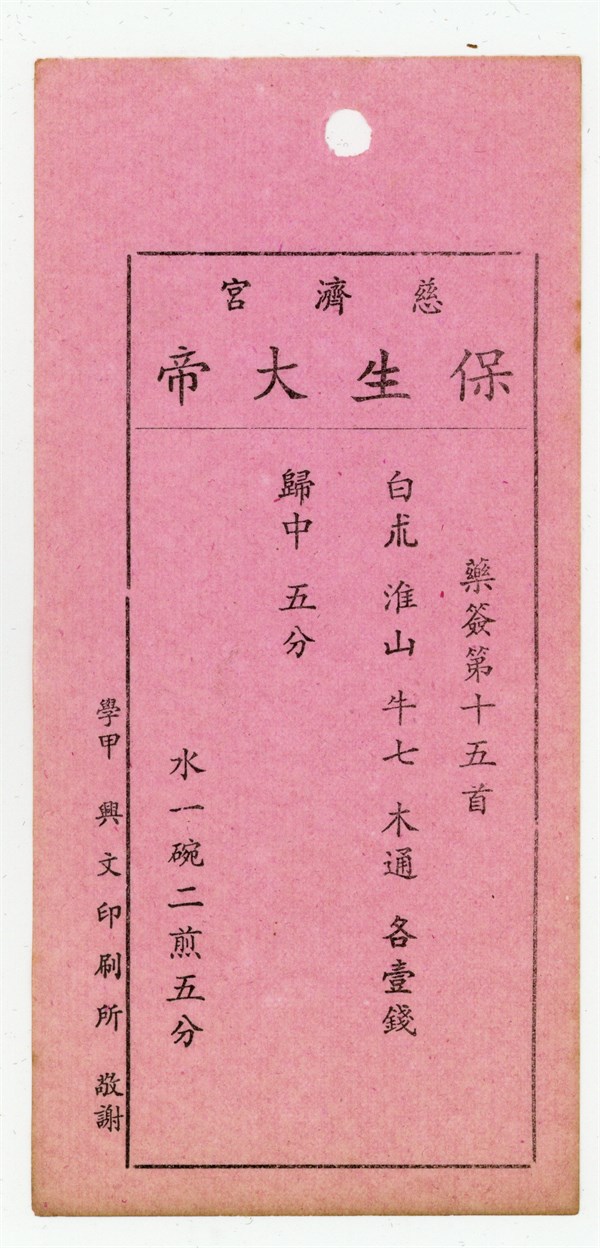 慈濟宮
保生大帝
藥簽第十五首
白朮 淮山 牛七 木通 各壹錢
歸中 五分
水一碗二煎五分
學甲 興文印刷所 敬謝